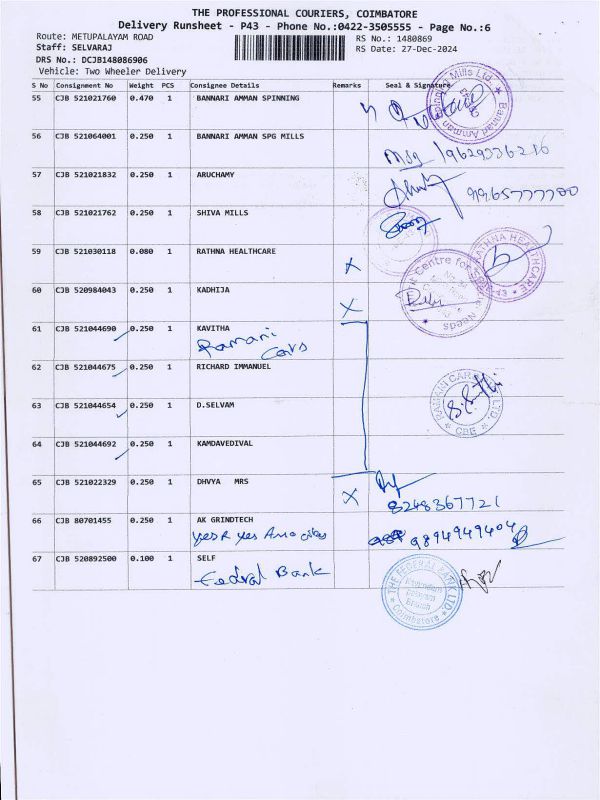 THE PROFESSIONAL COURIERS, COIMBATORE
Delivery Runsheet - P43 - Phone No.:0422-3505555 - Page No.:6
Route: METUPALAYAM ROAD
RS No.: 1480869
Staff: SELVARAJ
RS Date: 27-Dec-2024
DRS No.: DCJB148086906
Vehicle: Two Wheeler Delivery
S No Consignment No Weight PCS Consignee Details Remarks Seal & Signature
55 CJB 521021760 0.470 1 BANNARI AMMAN SPINNING
56 CJB 521064001 0.250 1 BANNARI AMMAN SPG MILLS
57 CJB 521021832 0.250 1 ARUCHAMY
9965777700
58 CJB 521021762 0.250 1 SHIVA MILLS
59 CJB 521030118 0.080 1 RATHNA HEALTHCARE
RATHNA HEALTHCARE
60 CJB 520984043 0.250 1 KADHIJA
61 CJB 521044690 0.250 1 KAVITHA
Ramani
Cars
62 CJB 521044675 0.250 1 RICHARD IMMANUEL
63 CJB 521044654 0.250 1 D.SELVAM
RAMANI CARS LTD. CBE
64 CJB 521044692 0.250 1 KAMDAVEDIVAL
65 CJB 521022329 0.250 1 DHVYA MRS
8248367721
66 CJB 80701455 0.250 1 AK GRINDTECH
yes R yes
9894949404
67 CJB 520892500 0.100 1 SELF
Fedral Bank
THE FEDERAL BANK LTD
Branch
Coimbatore